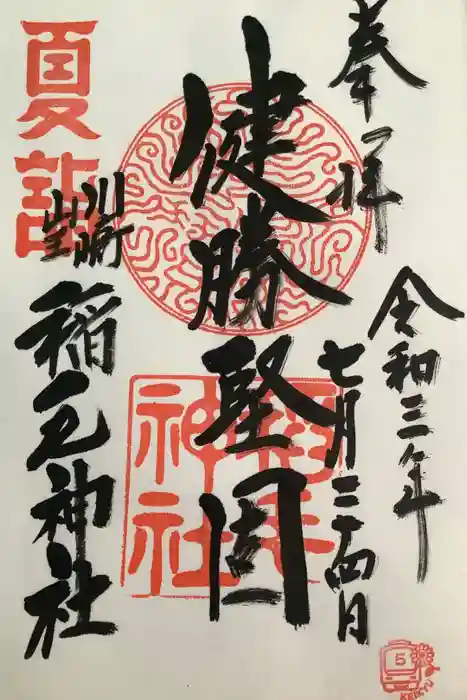 奉拝
令和三年
七月二十四日
健勝堅固
稲毛
神社
夏詣
川崎
稲毛神社
5
KEIKYU